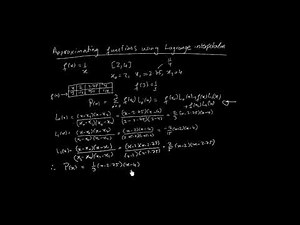 Approximating functions using Lagrange interpolation
f(x) = 1/x [2,4] 11/4
x₀ = 2, x₁ = 2.75, x₂ = 4
f(3) = 1/3
P(x) = Σ f(xₖ) Lₖ(x) = f(x₀)L₀(x) + f(x₁)L₁(x)
+ f(x₂)L₂(x)
L₀(x) = (x-x₁)(x-x₂) / (x₀-x₁)(x₀-x₂) = (x-2.75)(x-4) / (2-2.75)(2-4) = 2/3 (x-2.75)(x-4)
L₁(x) = (x-x₀)(x-x₂) / (x₁-x₀)(x₁-x₂) = (x-2)(x-4)
L₂(x) = (x-x₀)(x-x₁) / (x₂-x₀)(x₂-x₁) = (x-2)(x-2.75) / (4-2)(4-2.75) = 2/5 (x-2)(x-2.75)
∴ P(x) = 1/3 (x-2.75)(x-4)